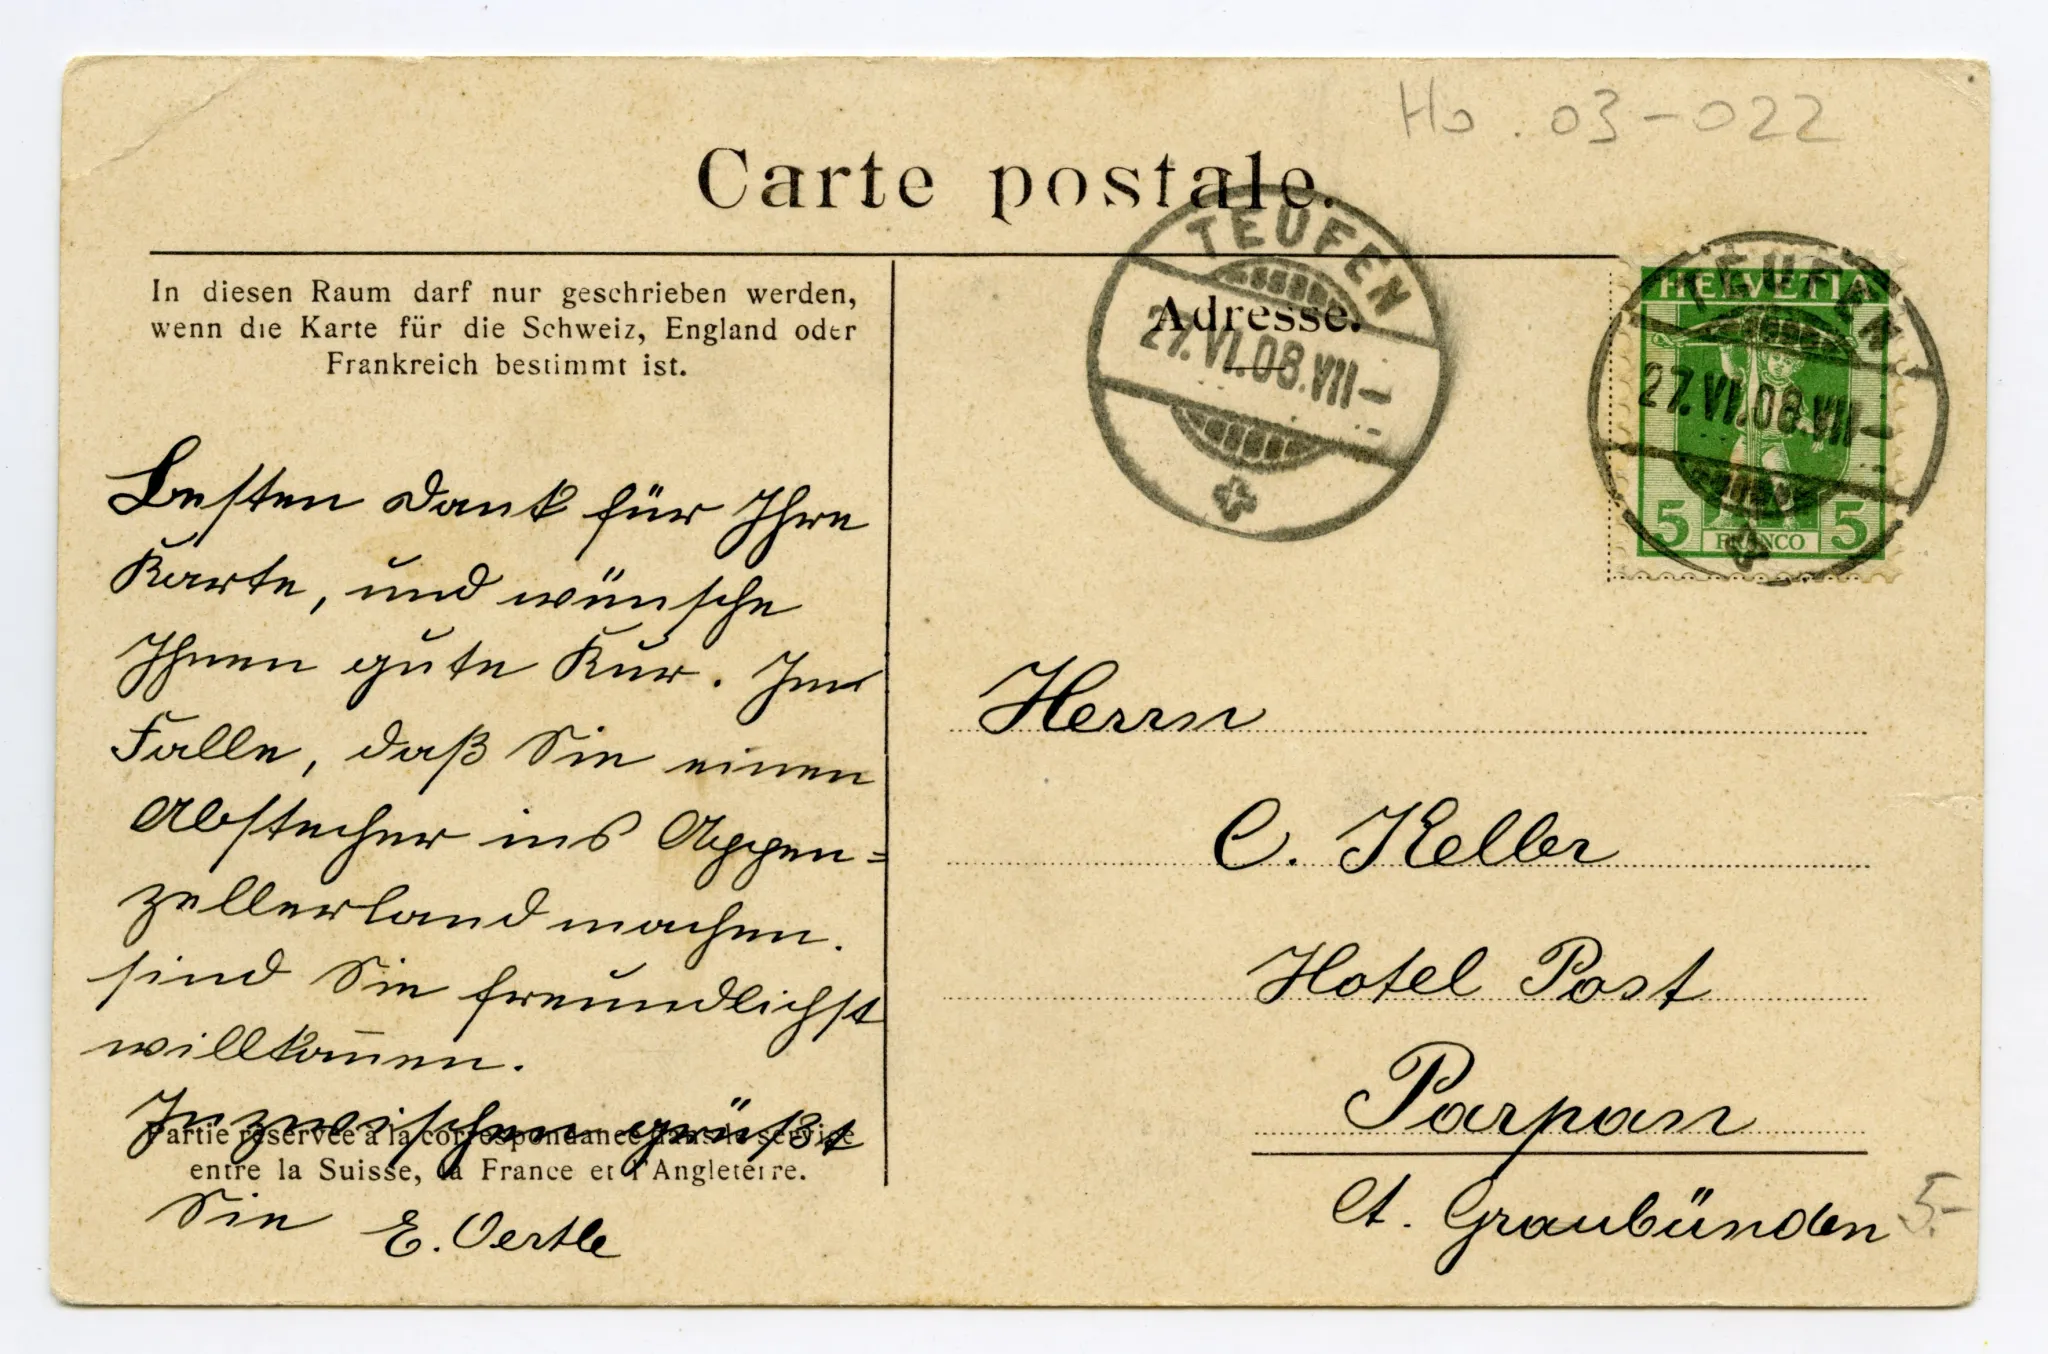 Ho. 03-022
Carte postale.
In diesen Raum darf nur geschrieben werden,
wenn die Karte für die Schweiz, England oder
Frankreich bestimmt ist.
Besten Dank für Ihre
Karte, und wünsche
Ihnen gute Kur. Im
Falle, daß Sie einen
Abstecher ins Appen=
zellerland machen.
sind Sie freundlichst
willkom̅en.
Inzwischen grüßt
Partie réservée à la correspondance dans le service
entre la Suisse, la France et l'Angleterre.
Sie E. Oertle
Adresse.
TEUFEN
27.VI.08.VII-
HELVETIA
5 FRANCO 5
TEUFEN
27.VI.08.VII-
Herrn
C. Keller
Hotel Post
Parpan
Ct. Graubünden
5.-